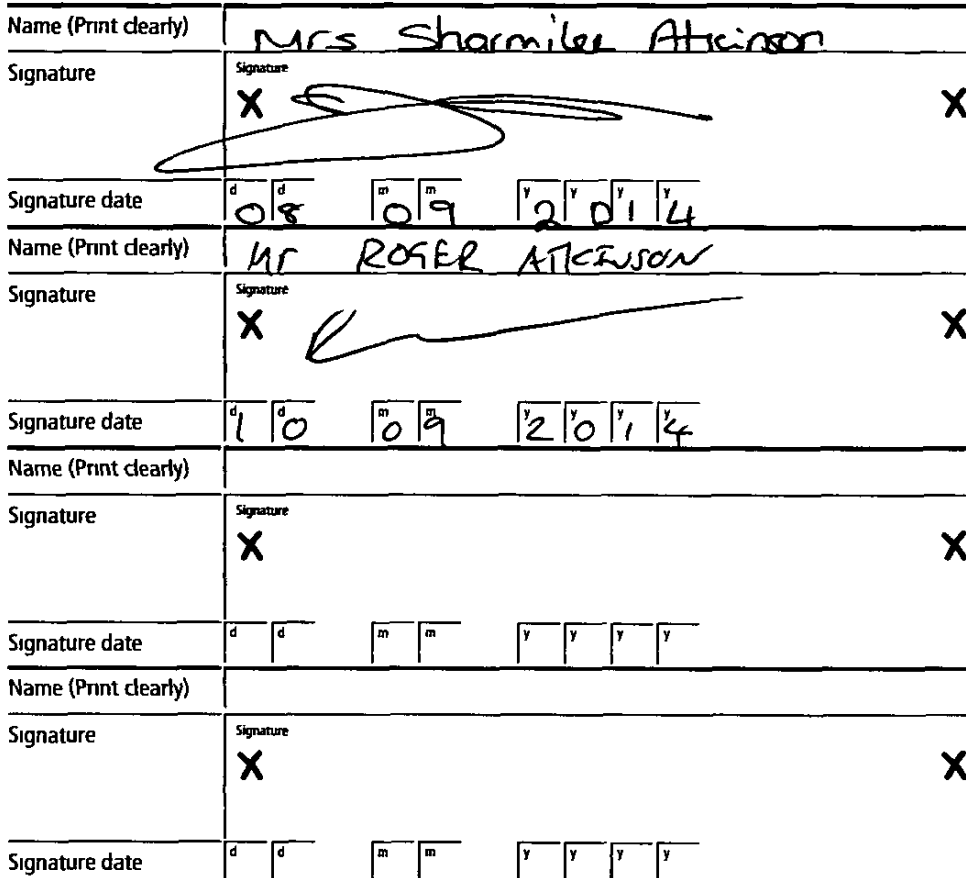 Name (Print clearly) Mrs Sharmilee Atkinson
Signature Signature
X X
Signature date d d m m y y y y
08 09 2014
Name (Print clearly) Mr ROGER ATKINSON
Signature Signature
X X
Signature date d d m m y y y y
10 09 2014
Name (Print clearly)
Signature Signature
X X
Signature date d d m m y y y y
Name (Print clearly)
Signature Signature
X X
Signature date d d m m y y y y